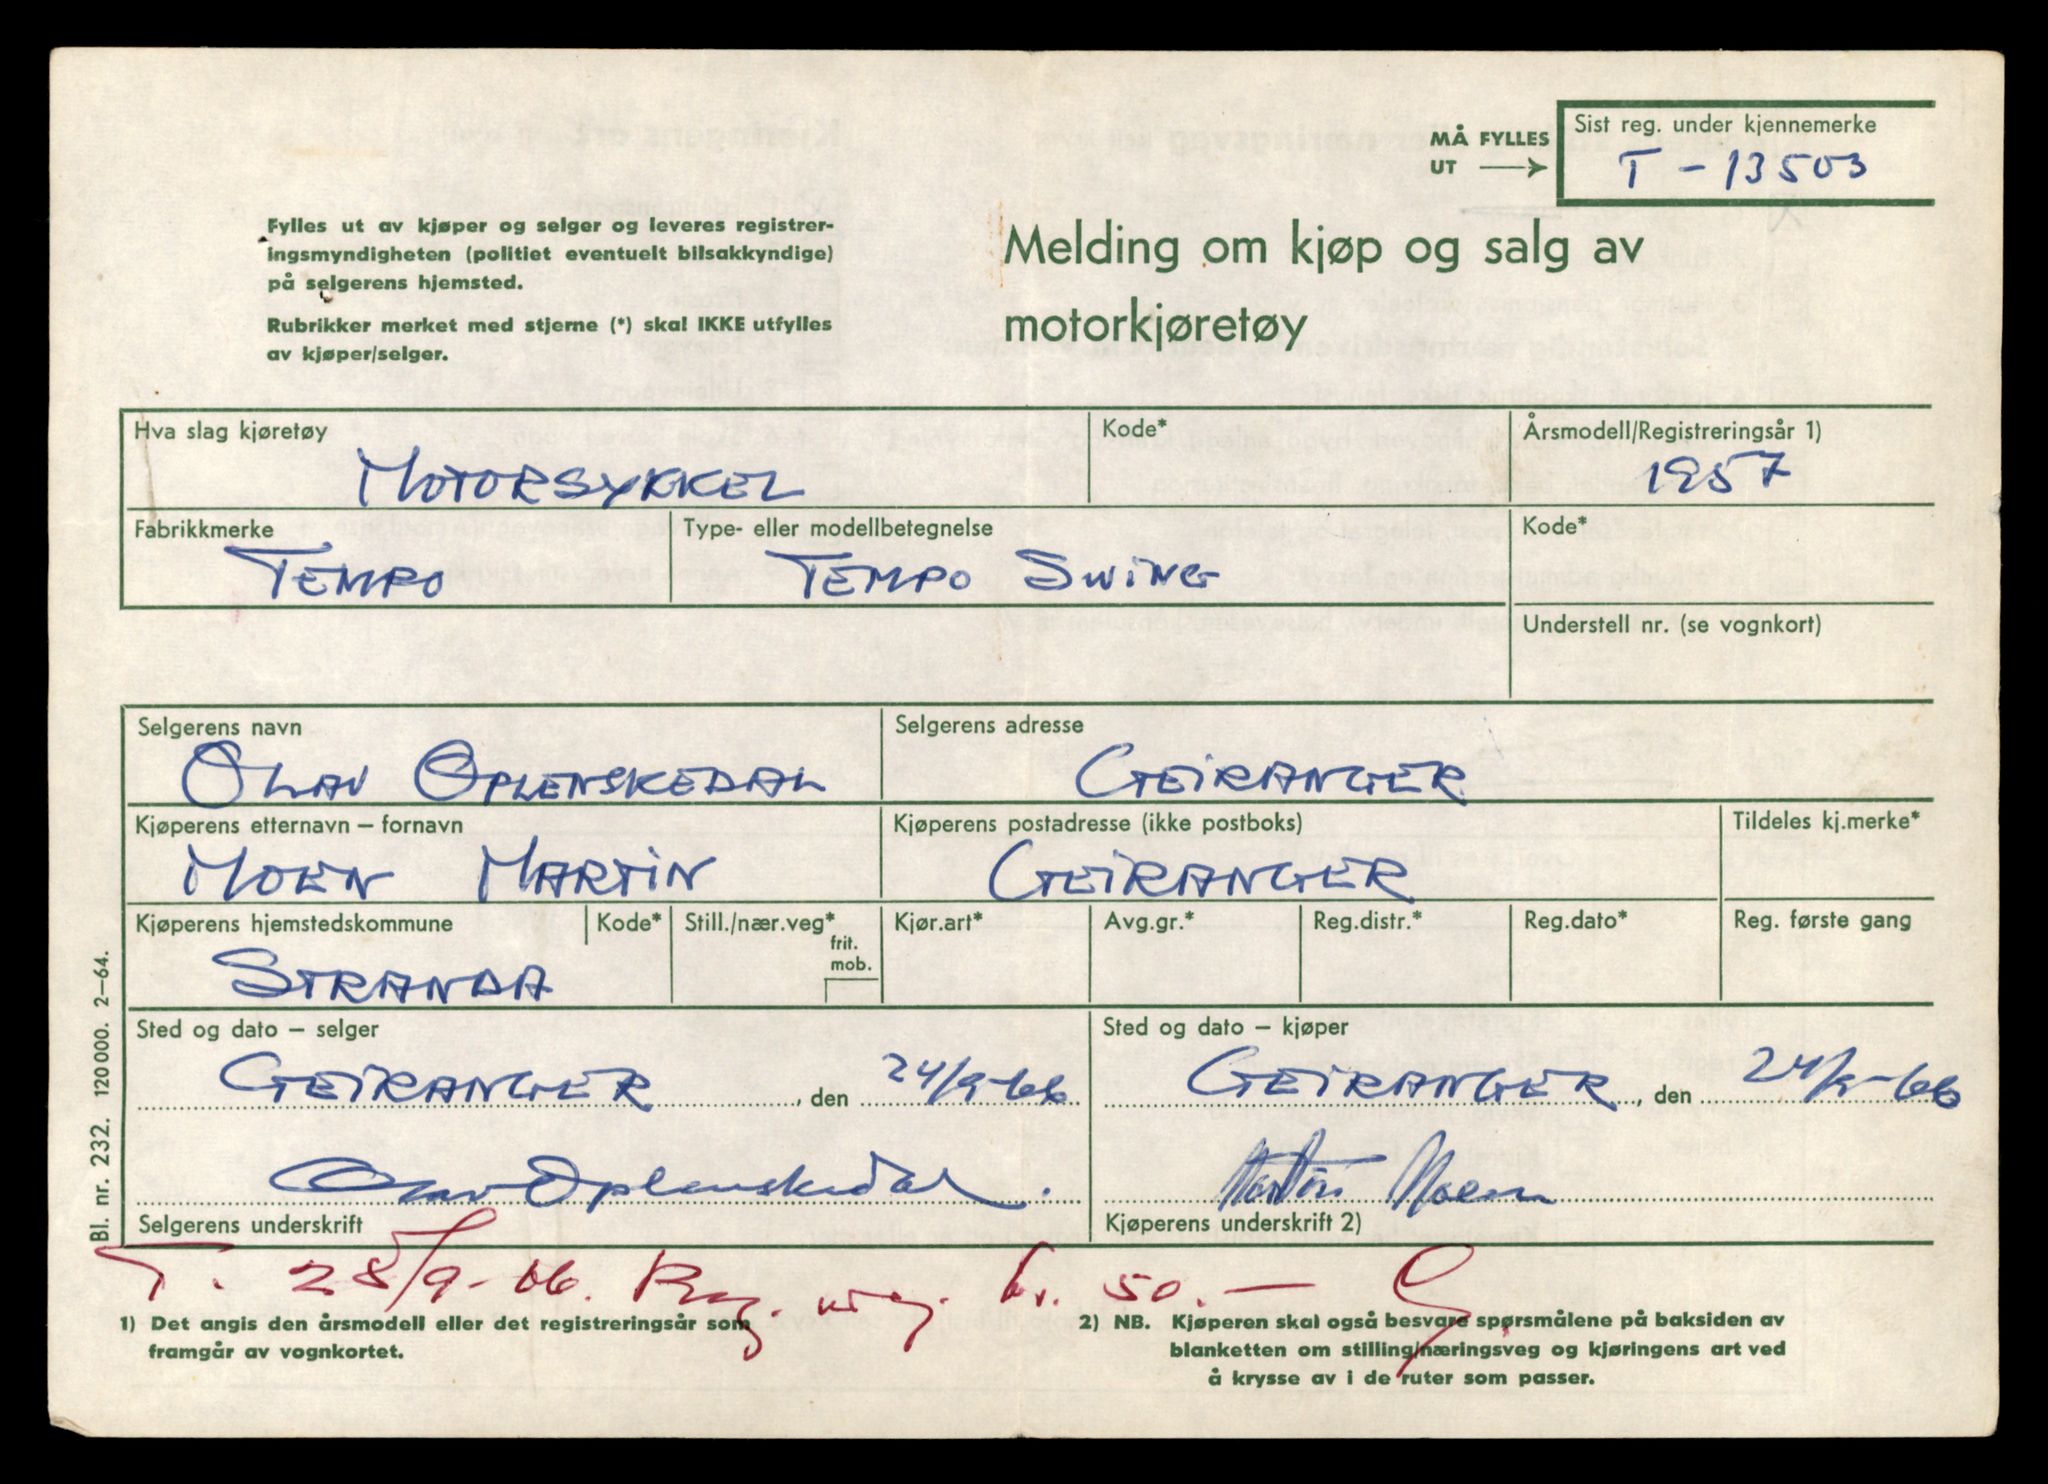 MÅ FYLLES
UT
Sist reg. under kjennemerke
T - 13503
Fylles ut av kjøper og selger og leveres registrer-
ingsmyndigheten (politiet eventuelt bilsakkyndige)
på selgerens hjemsted.
Rubrikker merket med stjerne (*) skal IKKE utfylles
av kjøper/selger.
Melding om kjøp og salg av
motorkjøretøy
Hva slag kjøretøy
MOTORSYKKEL
Kode*
Årsmodell/Registreringsår 1)
1957
Fabrikkmerke
TEMPO
Type- eller modellbetegnelse
TEMPO SWING
Kode*
Understell nr. (se vognkort)
Selgerens navn
OLAV OPLENSKEDAL
Selgerens adresse
GEIRANGER
Kjøperens etternavn – fornavn
MOEN MARTIN
Kjøperens postadresse (ikke postboks)
GEIRANGER
Tildeles kj.merke*
Kjøperens hjemstedskommune
STRANDA
Kode*
Still./nær.veg*
frit.
mob.
Kjør.art*
Avg.gr.*
Reg.distr.*
Reg.dato*
Reg. første gang
Sted og dato – selger
GEIRANGER, den 24/9-66
Sted og dato – kjøper
GEIRANGER, den 24/9-66
Olav Oplenskedal.
Selgerens underskrift
Martin Moen
Kjøperens underskrift 2)
Bl. nr. 232. 120 000. 2–64.
T. 28/9-66. Reg. kr. 50.–
1) Det angis den årsmodell eller det registreringsår som
framgår av vognkortet.
2) NB. Kjøperen skal også besvare spørsmålene på baksiden av
blanketten om stilling/næringsveg og kjøringens art ved
å krysse av i de ruter som passer.